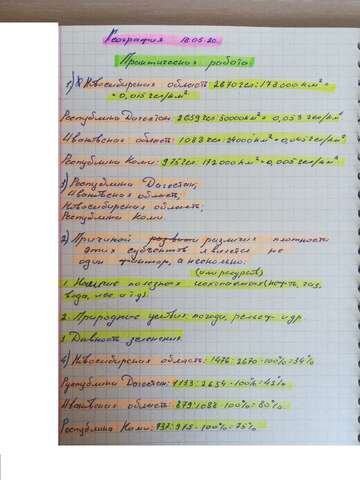 География 18.05.20.
Практическая работа
1) Новосибирская область: 2670 чел: 178000км² =
= 0,015 чел/км².
Республика Дагестан: 2659 чел: 50000км² = 0,053 чел/км²
Ивановская область: 1088 чел: 24000км² = 0,045 чел/км²
Республика Коми: 975 чел: 192000км² = 0,005 чел/км²
3) Республика Дагестан,
Ивановская область,
Новосибирская область,
Республика Коми
2) Причиной различия плотности
этих субъектов является не
один фактор, а несколько:
(или ресурсов)
1. Наличие полезных ископаемых (нефть, газ,
вода, лес и т.д).
2. Природные условия погода, рельеф и др
3. Давность заселения.
4) Новосибирская область: 2670 · 100% =
Республика Дагестан: 1133: 2654 · 100% = 43%
Ивановская область: 879: 1088 · 100% = 80%
Республика Коми: 732: 975 · 100% = 75%